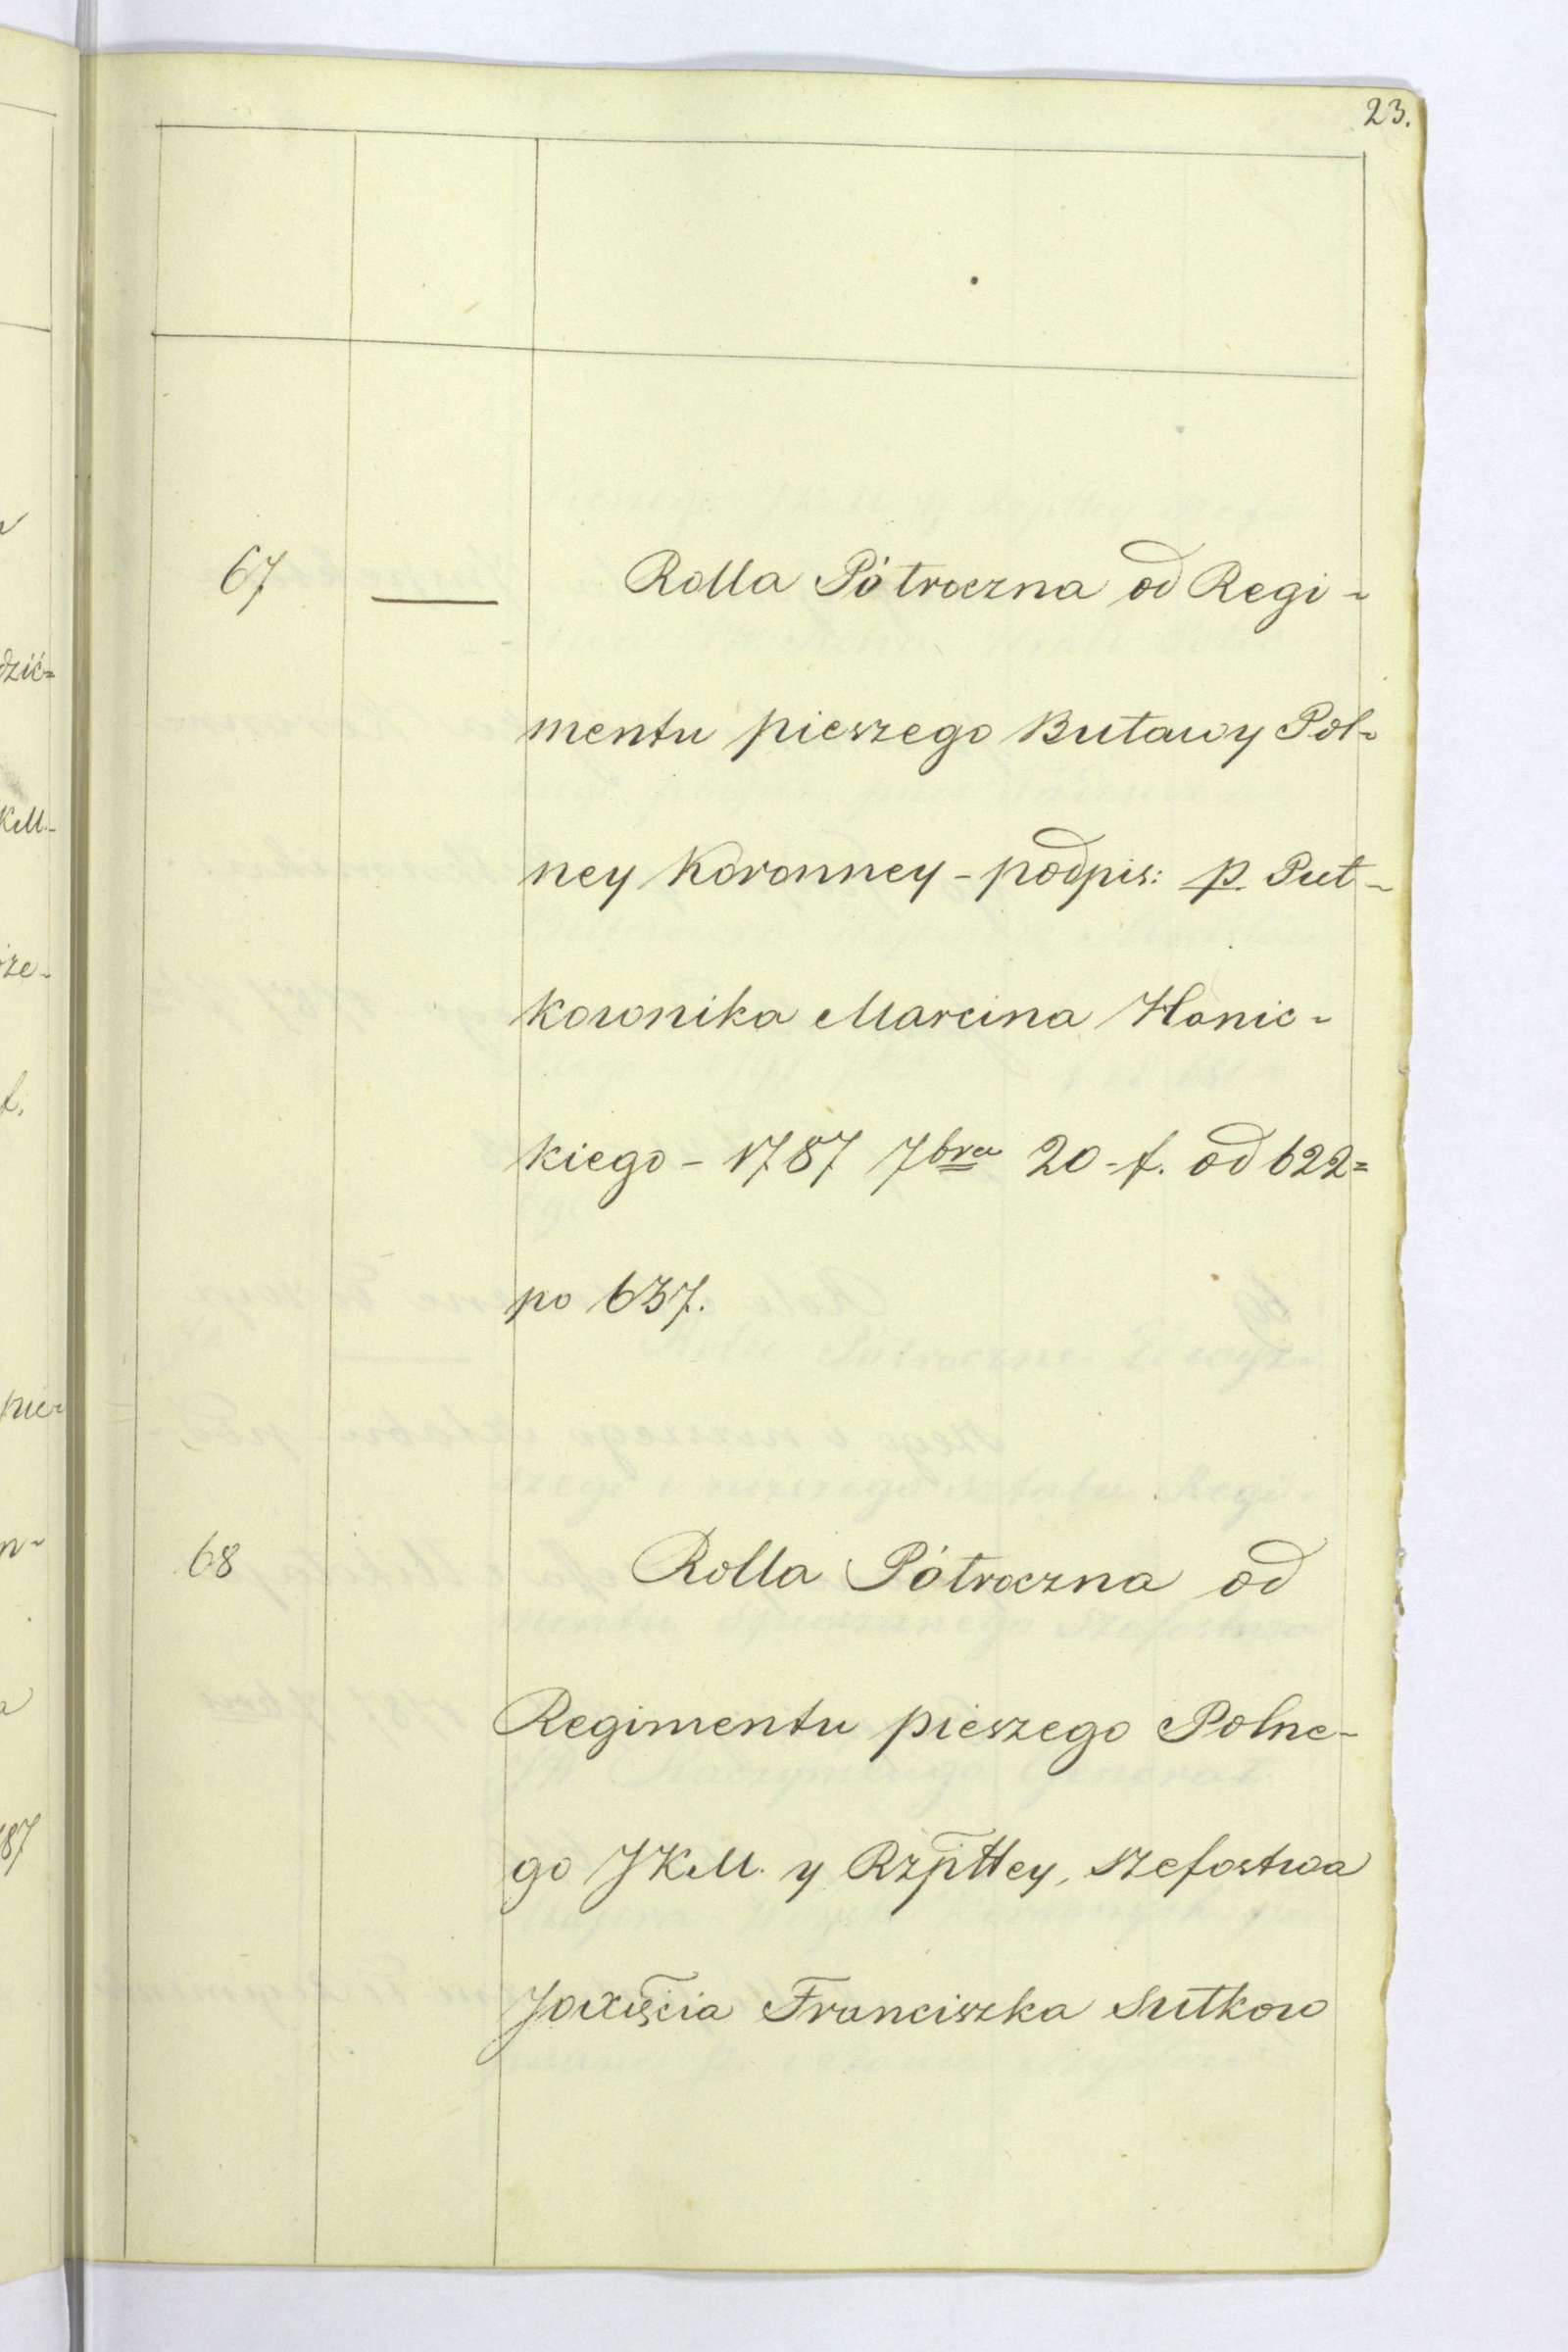 23.
67 — Rolla Półroczna od Regi-
mentu pieszego Buławy Pol-
ney Koronney - podpis: p Puł-
kownika Marcina Hanic-
kiego - 1787 7bra 20 - f. od 622=
po 637.
68 Rolla Półroczna od
Regimentu pieszego Polne-
go JKM. y Rzpttey, szefostwa
Franciszka Sułkow